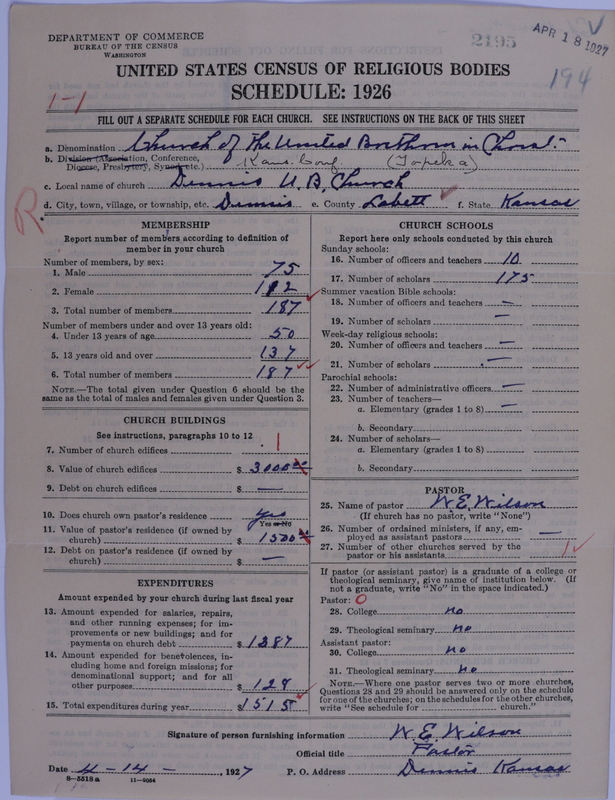 DEPARTMENT OF COMMERCE
BUREAU OF THE CENSUS
WASHINGTON
2195
APR 18 1927
194
UNITED STATES CENSUS OF RELIGIOUS BODIES
SCHEDULE: 1926
1-1
FILL OUT A SEPARATE SCHEDULE FOR EACH CHURCH. SEE INSTRUCTIONS ON THE BACK OF THIS SHEET
a. Denomination Church of the United Brethren in Christ
b. Division (Association, Conference, Diocese, Presbytery, Synod, etc.) Kans. Conf. (Topeka)
c. Local name of church Dennis U. B. Church
d. City, town, village, or township, etc. Dennis e. County Labett f. State Kansas
R
MEMBERSHIP
Report number of members according to definition of member in your church
Number of members, by sex:
1. Male 75
2. Female 112
3. Total number of members 187
Number of members under and over 13 years old:
4. Under 13 years of age 50
5. 13 years old and over 137
6. Total number of members 187
NOTE.—The total given under Question 6 should be the same as the total of males and females given under Question 3.
CHURCH BUILDINGS
See instructions, paragraphs 10 to 12
7. Number of church edifices 1
8. Value of church edifices $ 3000
9. Debt on church edifices $ —
10. Does church own pastor's residence yes
Yes or No
11. Value of pastor's residence (if owned by church) $ 1500
12. Debt on pastor's residence (if owned by church) $ —
EXPENDITURES
Amount expended by your church during last fiscal year
13. Amount expended for salaries, repairs, and other running expenses; for improvements or new buildings; and for payments on church debt $ 1387
14. Amount expended for benevolences, including home and foreign missions; for denominational support; and for all other purposes $ 128
15. Total expenditures during year $ 1515
CHURCH SCHOOLS
Report here only schools conducted by this church
Sunday schools:
16. Number of officers and teachers 10
17. Number of scholars 175
Summer vacation Bible schools:
18. Number of officers and teachers —
19. Number of scholars —
Week-day religious schools:
20. Number of officers and teachers —
21. Number of scholars —
Parochial schools:
22. Number of administrative officers —
23. Number of teachers—
a. Elementary (grades 1 to 8) —
b. Secondary
24. Number of scholars—
a. Elementary (grades 1 to 8)
b. Secondary
PASTOR
25. Name of pastor W. E. Wilson
(If church has no pastor, write "None")
26. Number of ordained ministers, if any, employed as assistant pastors —
27. Number of other churches served by the pastor or his assistants 1
If pastor (or assistant pastor) is a graduate of a college or theological seminary, give name of institution below. (If not a graduate, write "No" in the space indicated.)
Pastor: 0
28. College no
29. Theological seminary no
Assistant pastor:
30. College no
31. Theological seminary no
NOTE.—Where one pastor serves two or more churches, Questions 28 and 29 should be answered only on the schedule for one of the churches; on the schedules for the other churches, write "See schedule for ........ church."
Signature of person furnishing information W. E. Wilson
Official title Pastor
Date 4-14-, 1927 P. O. Address Dennis Kansas
8-5518a 11-9054